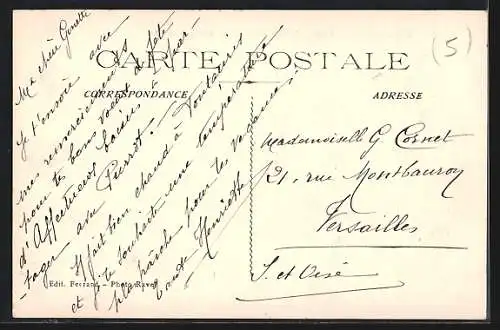 (5)
CARTE POSTALE
CORRESPONDANCE
ADRESSE
Ma chère Ginette
Je t'envoie avec
mes remerciements
pour tes bons voeux de fête
d'Affectueux baisers à par-
tager avec Pierrot.
Il fait bien chaud à
et je te souhaite une température
plus fraîche pour les vacances.
Henriette
Mademoiselle G. Cornet
21, rue Montbauron
Versailles
S. et Oise
Edit. Ferrand - Photo Ravet